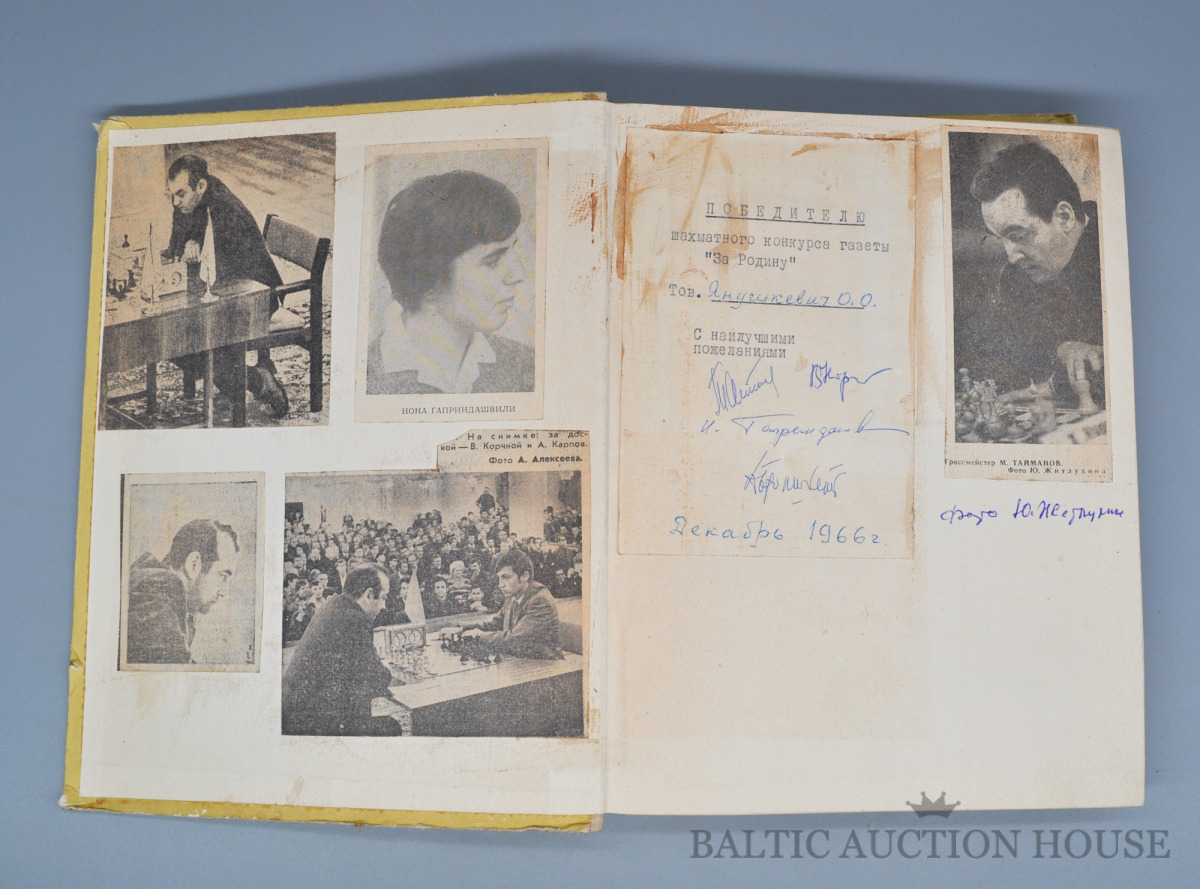 НОНА ГАПРИНДАШВИЛИ
На снимке: за дос-
кой — В. Корчной и А. Карпов.
Фото А. Алексеева.
ПОБЕДИТЕЛЮ
шахматного конкурса газеты
"За Родину"
Тов. Янушкевич О.О.
С наилучшими
пожеланиями
Декабрь 1966г.
Гроссмейстер М. ТАЙМАНОВ.
Фото Ю. Житлухина
фото Ю.
BALTIC AUCTION HOUSE